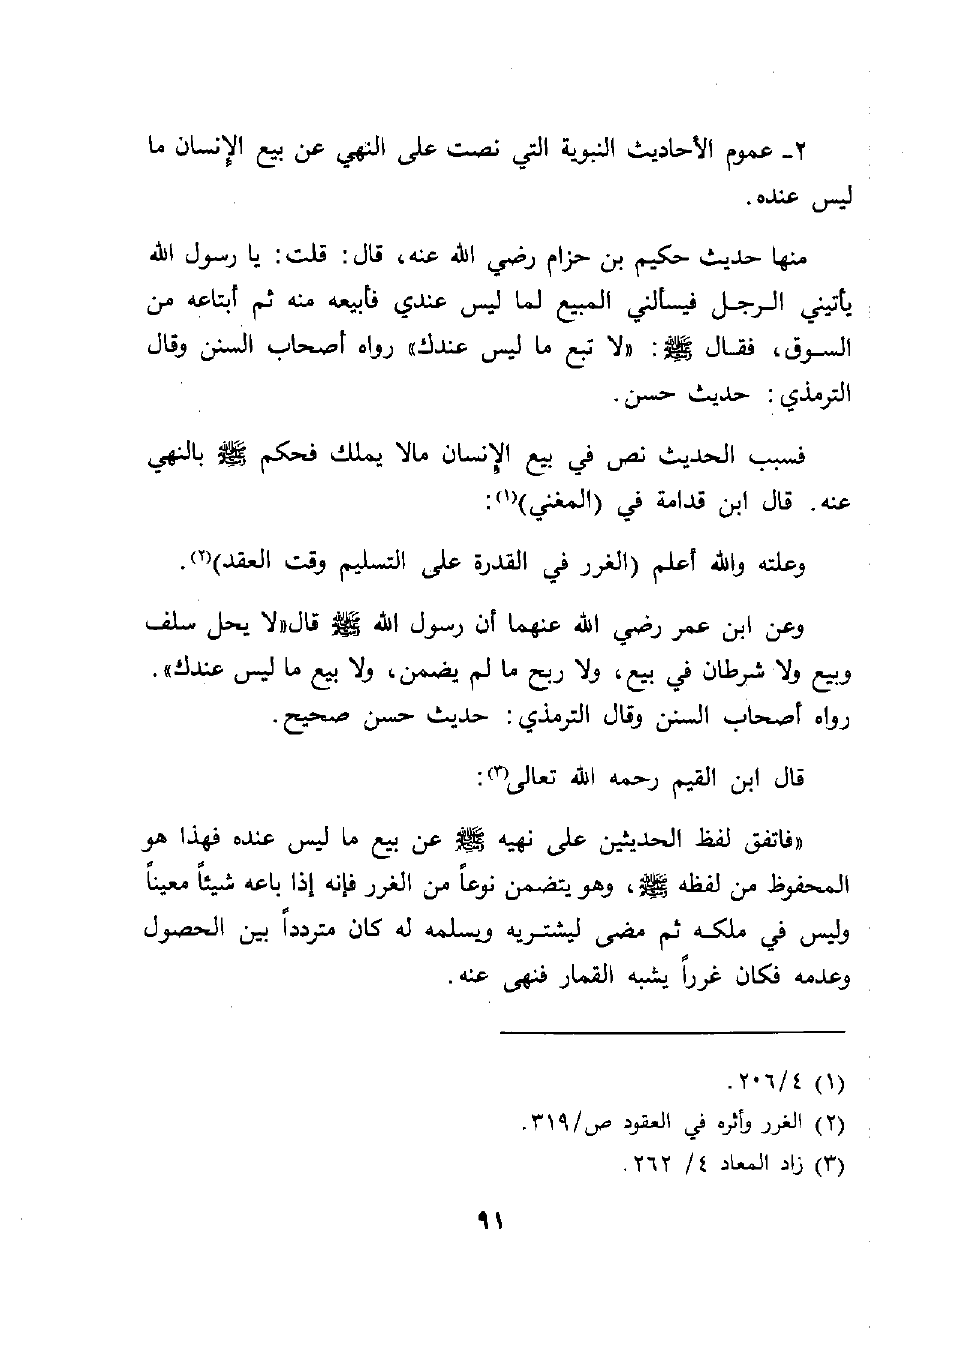 ٢ـ عموم الأحاديث النبوية التي نصت على النهي عن بيع الإنسان ما
ليس عنده.
منها حديث حكيم بن حزام رضي الله عنه، قال: قلت: يا رسول الله
يأتيني الرجل فيسألني المبيع لما ليس عندي فأبيعه منه ثم أبتاعه من
السوق، فقال ﷺ: «لا تبع ما ليس عندك» رواه أصحاب السنن وقال
الترمذي: حديث حسن.
فسبب الحديث نص في بيع الإنسان مالا يملك فحكم ﷺ بالنهي
عنه. قال ابن قدامة في (المغني)(١):
وعلته والله أعلم (الغرر في القدرة على التسليم وقت العقد)(٢).
وعن ابن عمر رضي الله عنهما أن رسول الله ﷺ قال«لا يحل سلف
وبيع ولا شرطان في بيع، ولا ربح ما لم يضمن، ولا بيع ما ليس عندك».
رواه أصحاب السنن وقال الترمذي: حديث حسن صحيح.
قال ابن القيم رحمه الله تعالى(٣):
«فاتفق لفظ الحديثين على نهيه ﷺ عن بيع ما ليس عنده فهذا هو
المحفوظ من لفظه ﷺ، وهو يتضمن نوعاً من الغرر فإنه إذا باعه شيئاً معيناً
وليس في ملكه ثم مضى ليشتريه ويسلمه له كان متردداً بين الحصول
وعدمه فكان غرراً يشبه القمار فنهى عنه.
(١) ٢٠٦/٤.
(٢) الغرر وأثره في العقود ص/٣١٩.
(٣) زاد المعاد ٤/ ٢٦٢.
٩١